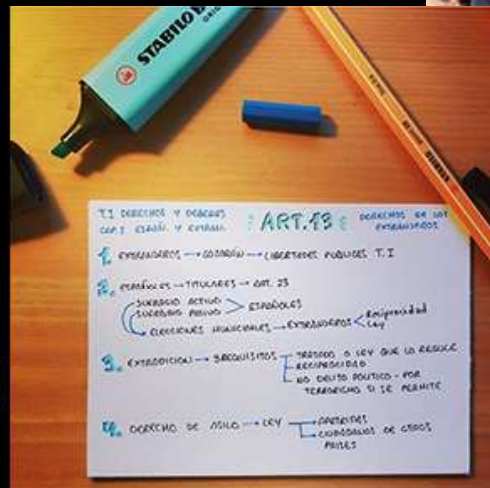 STABILO BO
ORIG
STABILO
T.I DERECHOS Y DEBERES
CAP.I ESPAÑ. Y EXTRAN.
ART.13
DERECHOS DE LOS
EXTRANJEROS
1. EXTRANJEROS → GOZARÁN → LIBERTADES PUBLICAS T. I
2. ESPAÑOLES → TITULARES → ART. 23
SUFRAGIO ACTIVO
SUFRAGIO PASIVO > ESPAÑOLES
ELECCIONES MUNICIPALES → EXTRANJEROS < Reciprocidad
Ley
3. EXTRADICION → 3 REQUISITOS
TRATADO O LEY QUE LO REGULE
RECIPROCIDAD
NO DELITO POLITICO - POR
TERRORISMO SI SE PERMITE
4. DERECHO DE ASILO → LEY
APATRIDAS
CIUDADANOS DE OTROS
PAISES